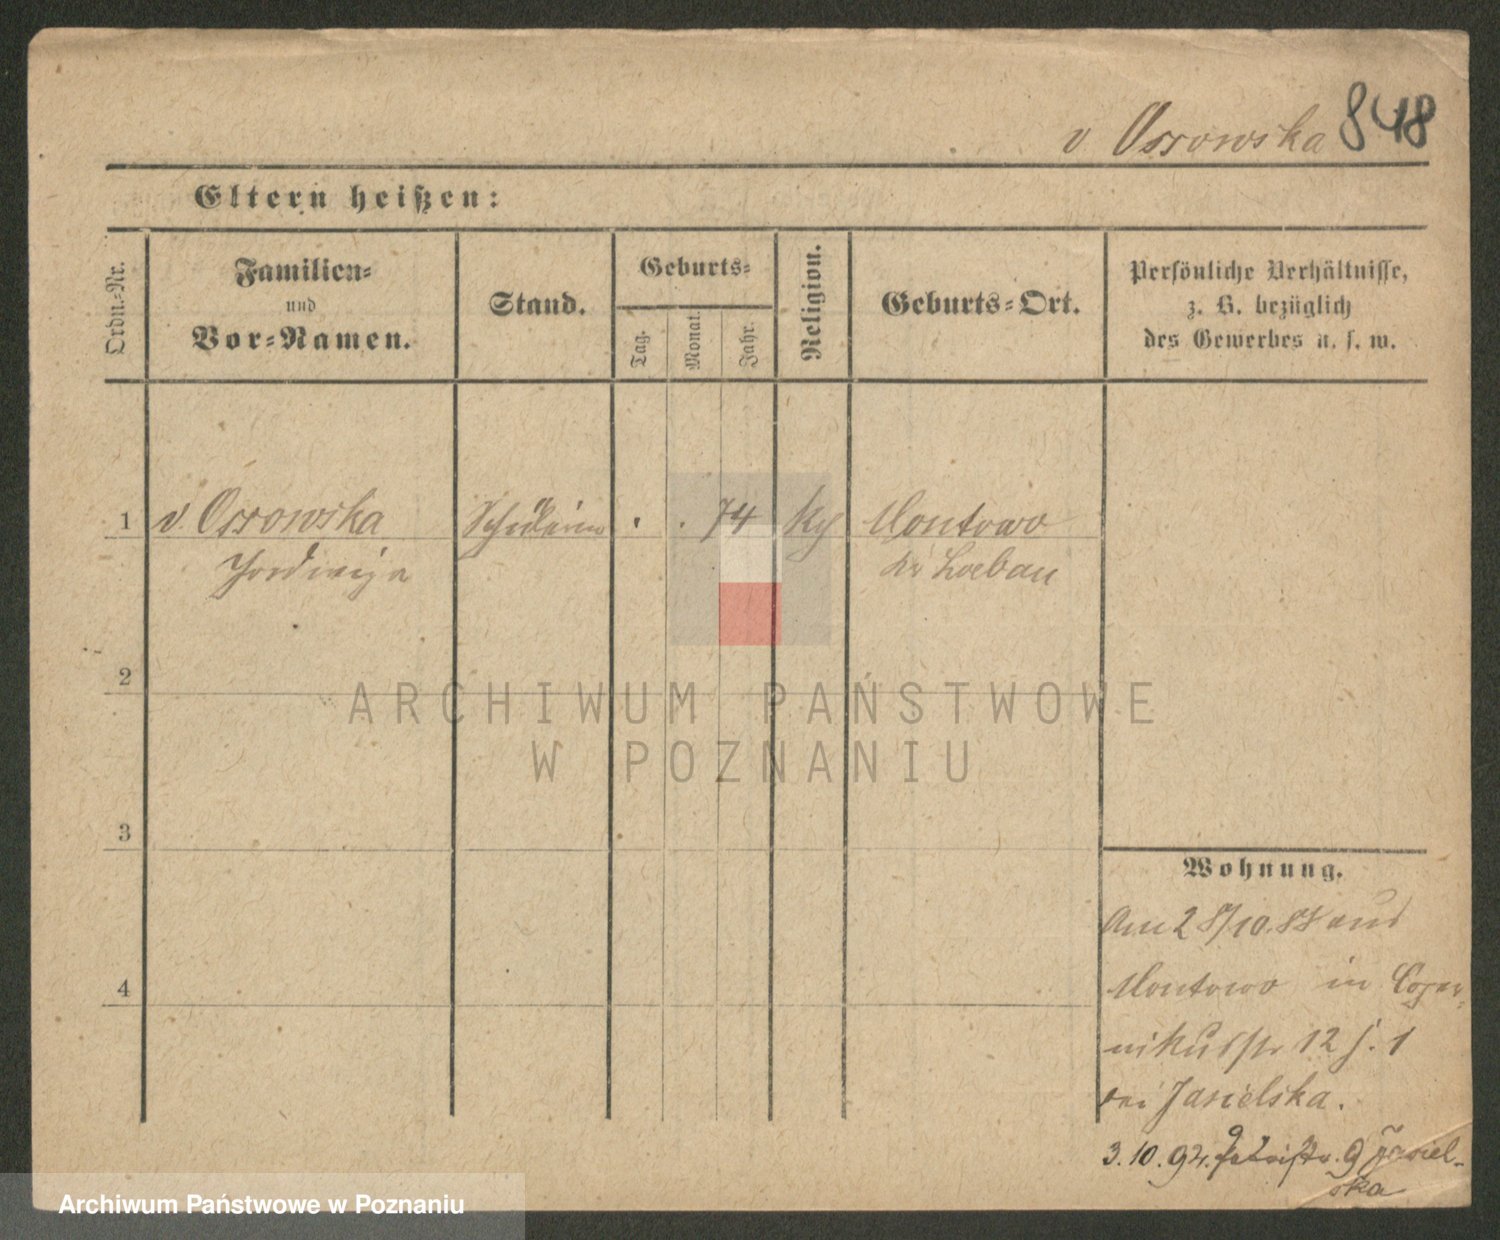 v Ossowska 848
Eltern heißen:
Ordn.-Nr.
Familien-
und
Vor-Namen.
Stand.
Geburts-
Tag.
Monat.
Jahr.
Religion.
Geburts-Ort.
Persönliche Verhältnisse,
z. B. bezüglich
des Gewerbes u. s. w.
1 v. Ossowska Schülerin . . 74 Montowo
Kr Loebau
2
ARCHIWUM PAŃSTWOWE
W POZNANIU
3
4
Wohnung.
Am 28/10.88 aus
Montowo in Coper-
nikusstr 12 I. 1
bei Jasielska.
3.10.92. 9 Jasiel-
ska
Archiwum Państwowe w Poznaniu